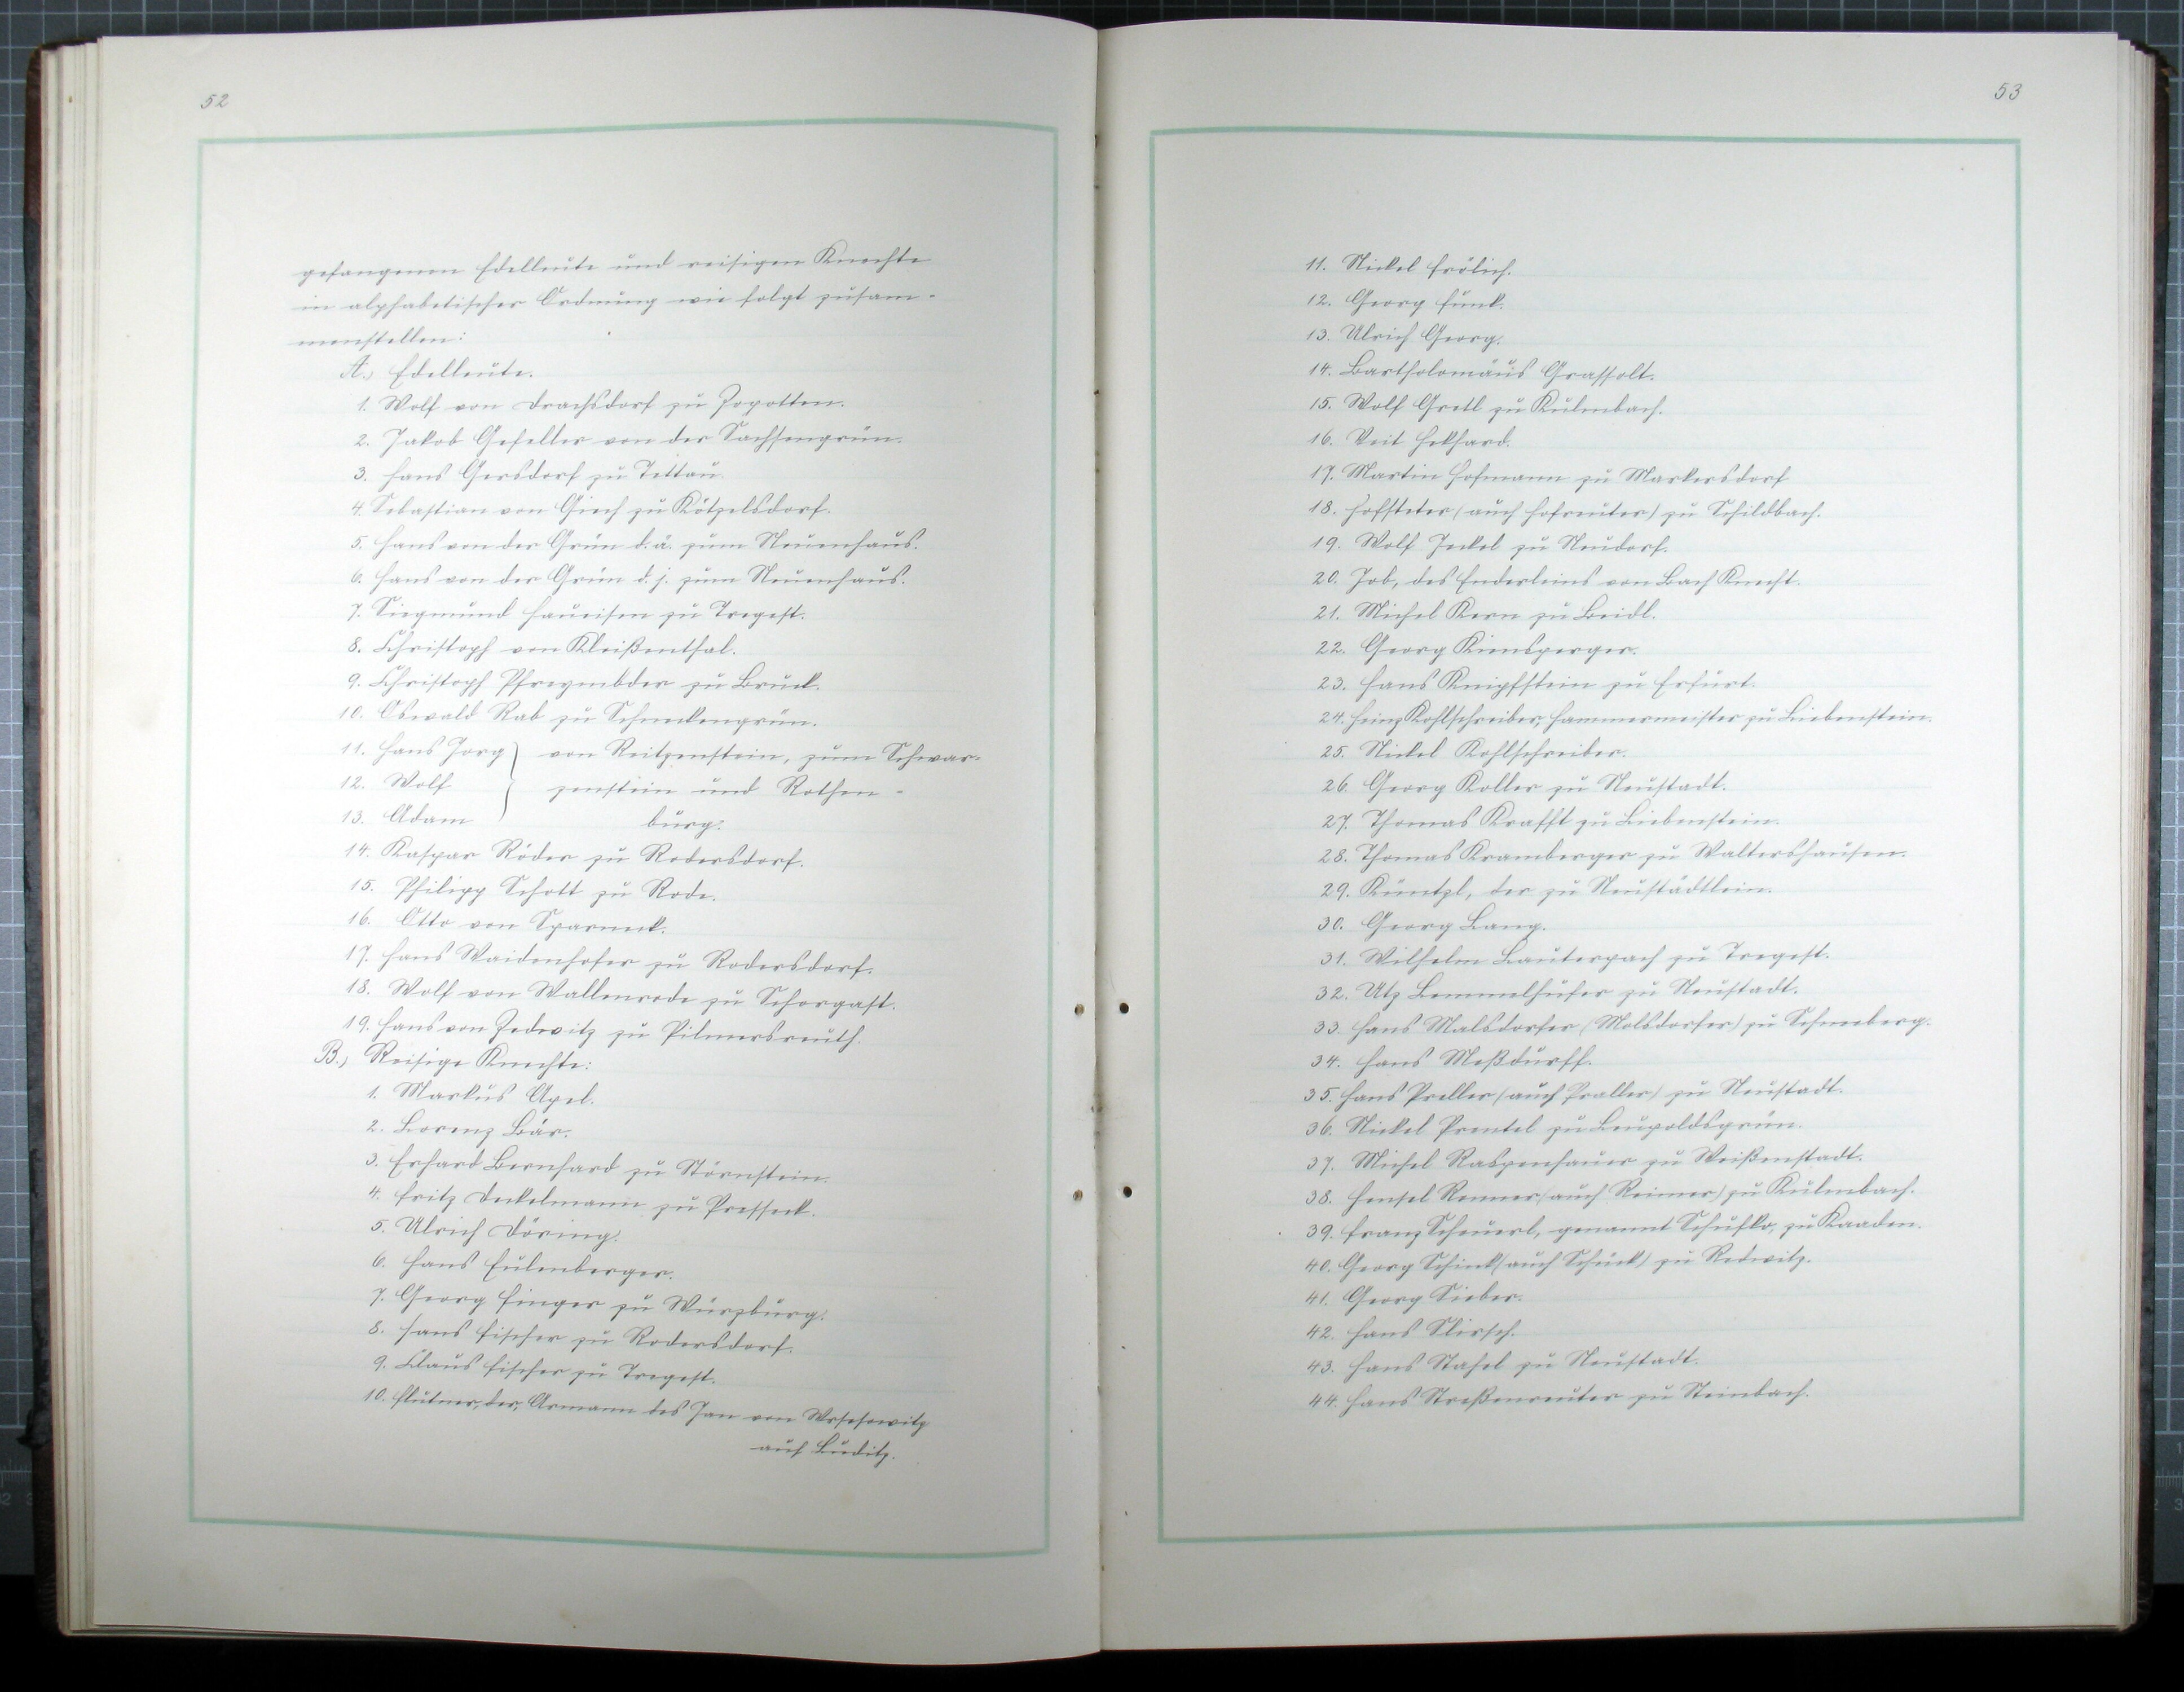 52
gefangenen Edelleute und reisigen Knechte
in alphabetischer Ordnung wie folgt zusam-
menstellen:
A., Edelleute.
1. Wolf von Drachsdorf zu Zopotten.
2. Jakob Gefeller von der Sachsengrün.
3. Hans Gersdorf zu Tettau.
4. Sebastian von Giech zu Kötzelsdorf.
5. Hans von der Grün d. ä. zum Neuenhaus.
6. Hans von der Grün d. j. zum Neuenhaus.
7. Siegmund Haueisen zu Tregest.
8. Christoph von Kleißenthal.
9. Christoph Pfreymbder zu Bruck.
10. Oswald Rab zu Schneckengrün.
11. Hans Jorg } von Reitzenstein, zum Schwar-
12. Wolf } zenstein und Rothen-
13. Adam } burg.
14. Kaspar Röder zu Rodersdorf.
15. Philipp Schott zu Rode.
16. Otto von Sparneck.
17. Hans Waidenhofer zu Rodersdorf.
18. Wolf von Wallenrode zu Schorgast.
19. Hans von Zedwitz zu Pilmersreuth.
B., Reisige Knechte:
1. Markus Apel.
2. Lorenz Bär.
3. Erhard Bernhard zu Störnstein.
4. Fritz Deckelmann zu Presseck.
5. Ulrich Döring.
6. Hans Eulenberger.
7. Georg Finger zu Würzburg.
8. Hans Fischer zu Rodersdorf.
9. Claus Fischer zu Tregest.
10. Flutner, der, Armann des Jan von Wrsesowitz
auf Luditz.
53
11. Nickel Frölich.
12. Georg Funk.
13. Ulrich Georg.
14. Bartholomäus Grassolt.
15. Wolf Gretl zu Kulmbach.
16. Veit Hekhard.
17. Martin Hofmann zu Markersdorf
18. Hofsteter (auch Hofreuter) zu Schildbach.
19. Wolf Jeckel zu Neudorf.
20. Job, des Enderleins von Bach Knecht.
21. Michel Kern zu Beidl.
22. Georg Kiensperger.
23. Hans Knipfstein zu Erfurt.
24. Heinz Kohlschreiber, Hammermeister zu Liebenstein.
25. Nickel Kohlschreiber.
26. Georg Koller zu Neustadt.
27. Thomas Krafft zu Liebenstein.
28. Thomas Kramberger zu Waltershausen.
29. Küntzl, der zu Neustädtlein.
30. Georg Lang.
31. Wilhelm Lauterpach zu Tregest.
32. Utz Lemmelhufer zu Neustadt.
33. Hans Malsdorfer (Molsdorfer) zu Schneeberg.
34. Hans Meßdurff.
35. Hans Preller (auch Praller) zu Neustadt.
36. Nickel Prentel zu Leupoldsgrün.
37. Michel Raspenhauer zu Weißenstadt.
38. Hensel Renner (auch Reimer) zu Kulmbach.
39. Franz Scheuerl, genannt Schufko, zu Kaaden.
40. Georg Schink (auch Schück) zu Redwitz.
41. Georg Sieber.
42. Hans Slirsch.
43. Hans Stahel zu Neustadt.
44. Hans Streßenreuter zu Steinbach.